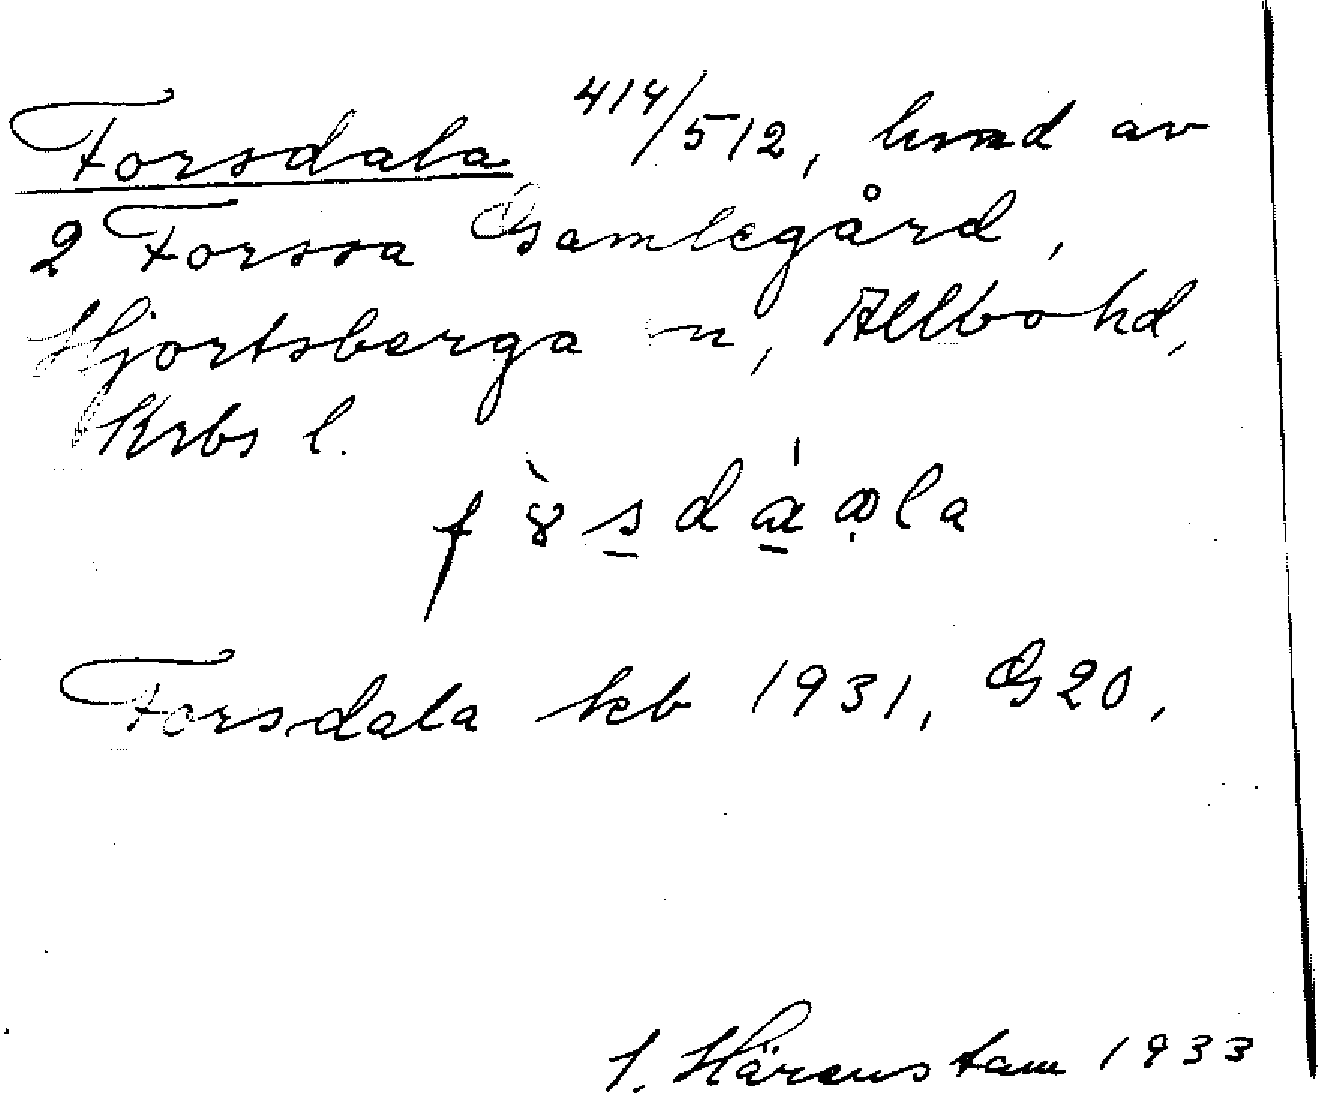 Forsdala 414/512, hmd av
2 Forssa Gamlegård,
Hjortsberga sn, Allbo hd,
Krbs l.
Forsdala kb 1931, G20,
Härenstam 1933